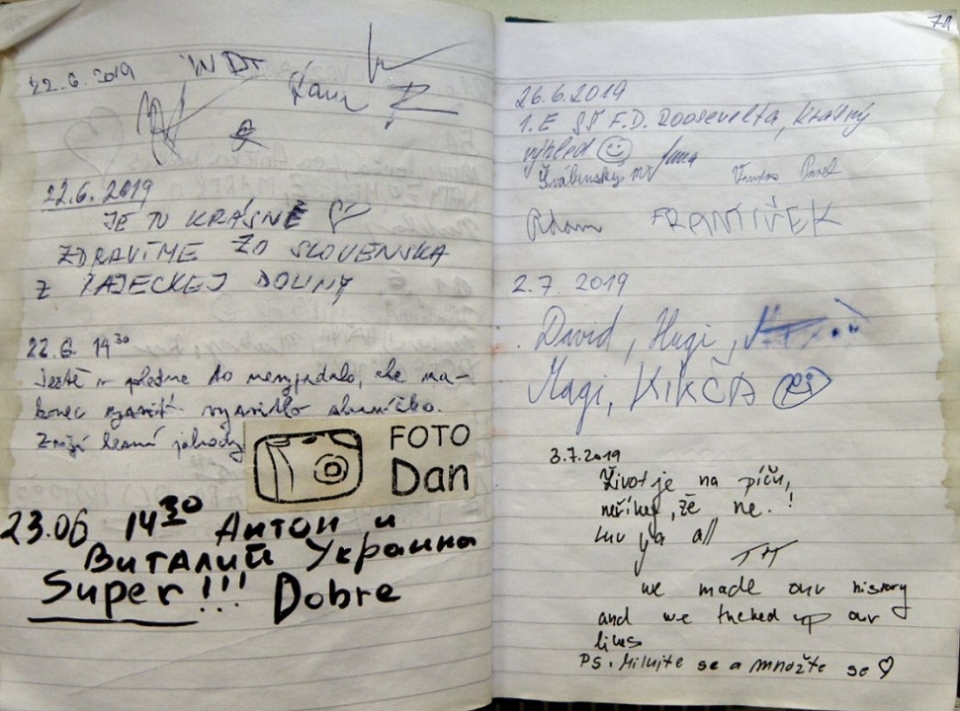 22.6.2019 WDT
22.6.2019
JE TU KRÁSNĚ
ZDRAVÍME ZO SLOVENSKA
Z RAJECKEJ DOLINY
22.6 14³⁰
Ještě v poledne to nevypadalo, že na-
konec vysvitlo sluníčko.
Zrají lesní jahody
FOTO
Dan
23.06 14³⁰ Антон и
Виталий Украина
Super!!! Dobre
71
26.6.2019
1.E SŠ F.D. Roosevelta, Krásný
výhled
Jana
Pavel
Adam FRANTIŠEK
2.7.2019
David, Hugi,
Magi, KIKČA
3.7.2019
Život je na píču,
neříkej, že ne.!
luv ya all
TH
we made our history
and we fucked up our
lives
PS. Milujte se a množte se